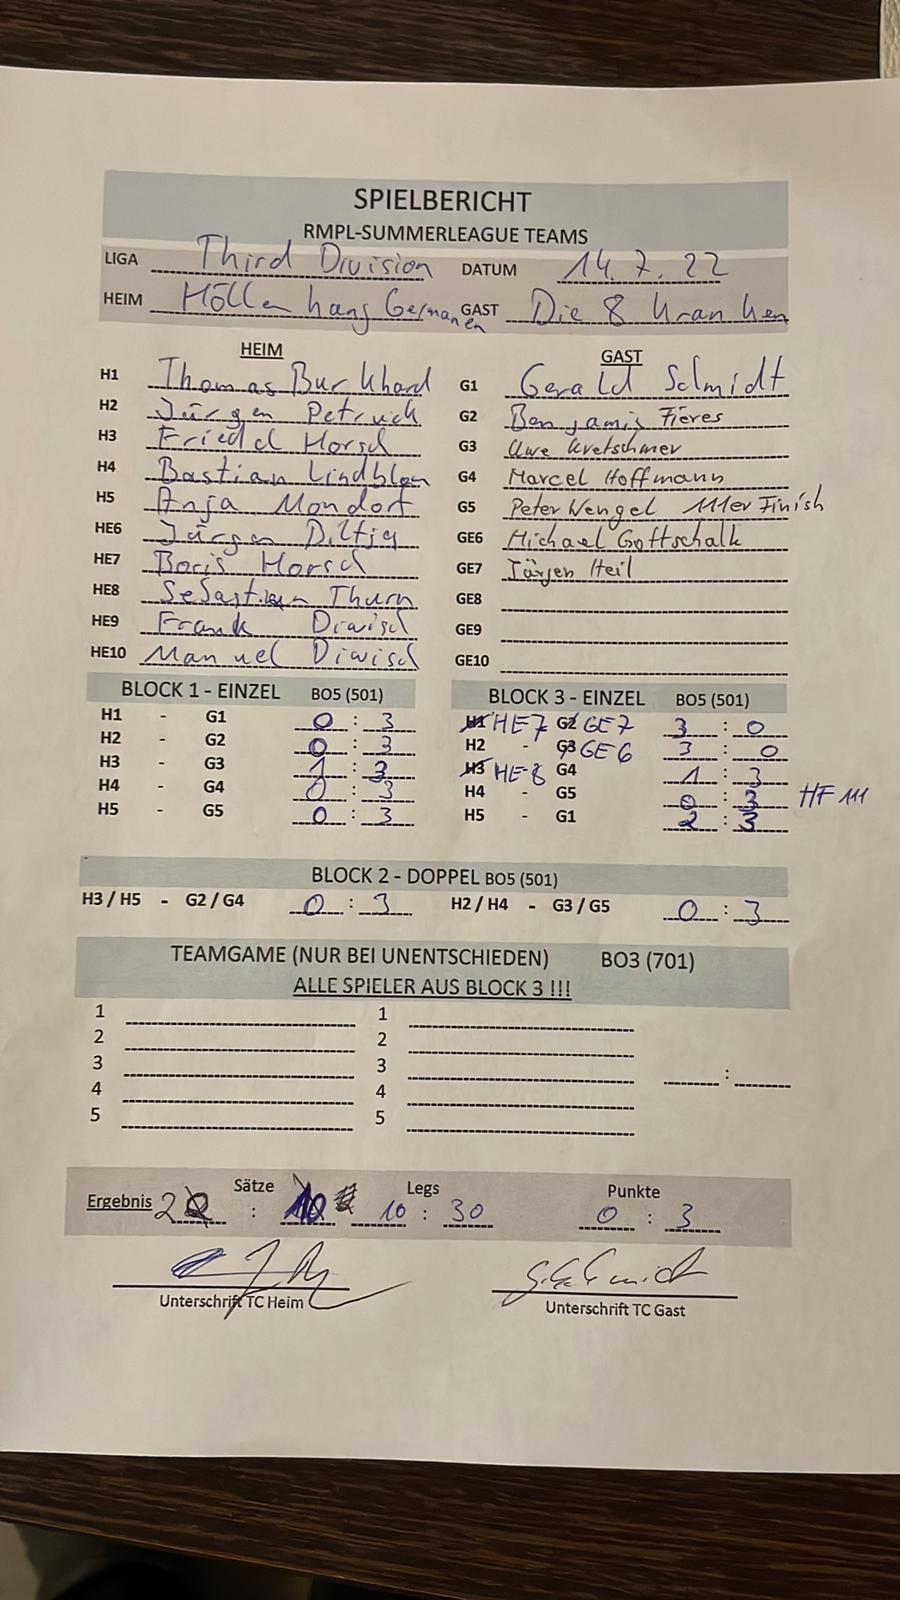 SPIELBERICHT
RMPL-SUMMERLEAGUE TEAMS
LIGA Third Division DATUM 14.7.22
HEIM Höllenhang Germanen GAST Die 8 Kranken
HEIM GAST
H1 Thomas Burkhard G1 Gerald Schmidt
H2 Jürgen Petruck G2 Benjamin Fieres
H3 Friedel Horsch G3 Uwe Kretschmer
H4 Bastian G4 Marcel Hoffmann
H5 Anja Mondorf G5 Peter Wengel 111er Finish
HE6 Jürgen GE6 Michael Gottschalk
HE7 Boris Horsch GE7 Jürgen Heil
HE8 Sebastian Thurn GE8
HE9 Frank Diwisch GE9
HE10 Manuel Diwisch GE10
BLOCK 1 - EINZEL BO5 (501) BLOCK 3 - EINZEL BO5 (501)
H1 - G1 0 : 3 H1 HE7 G2 GE7 3 : 0
H2 - G2 0 : 3 H2 - G3 GE6 3 : 0
H3 - G3 1 : 3 H3 HE-8 G4 1 : 3
H4 - G4 0 : 3 H4 - G5 0 : 3 HF 111
H5 - G5 0 : 3 H5 - G1 2 : 3
BLOCK 2 - DOPPEL BO5 (501)
H3 / H5 - G2 / G4 0 : 3 H2 / H4 - G3 / G5 0 : 3
TEAMGAME (NUR BEI UNENTSCHIEDEN) BO3 (701)
ALLE SPIELER AUS BLOCK 3 !!!
1 1
2 2
3 3 :
4 4
5 5
Sätze Legs Punkte
Ergebnis 2 : 10 10 : 30 0 : 3
Unterschrift TC Heim Unterschrift TC Gast